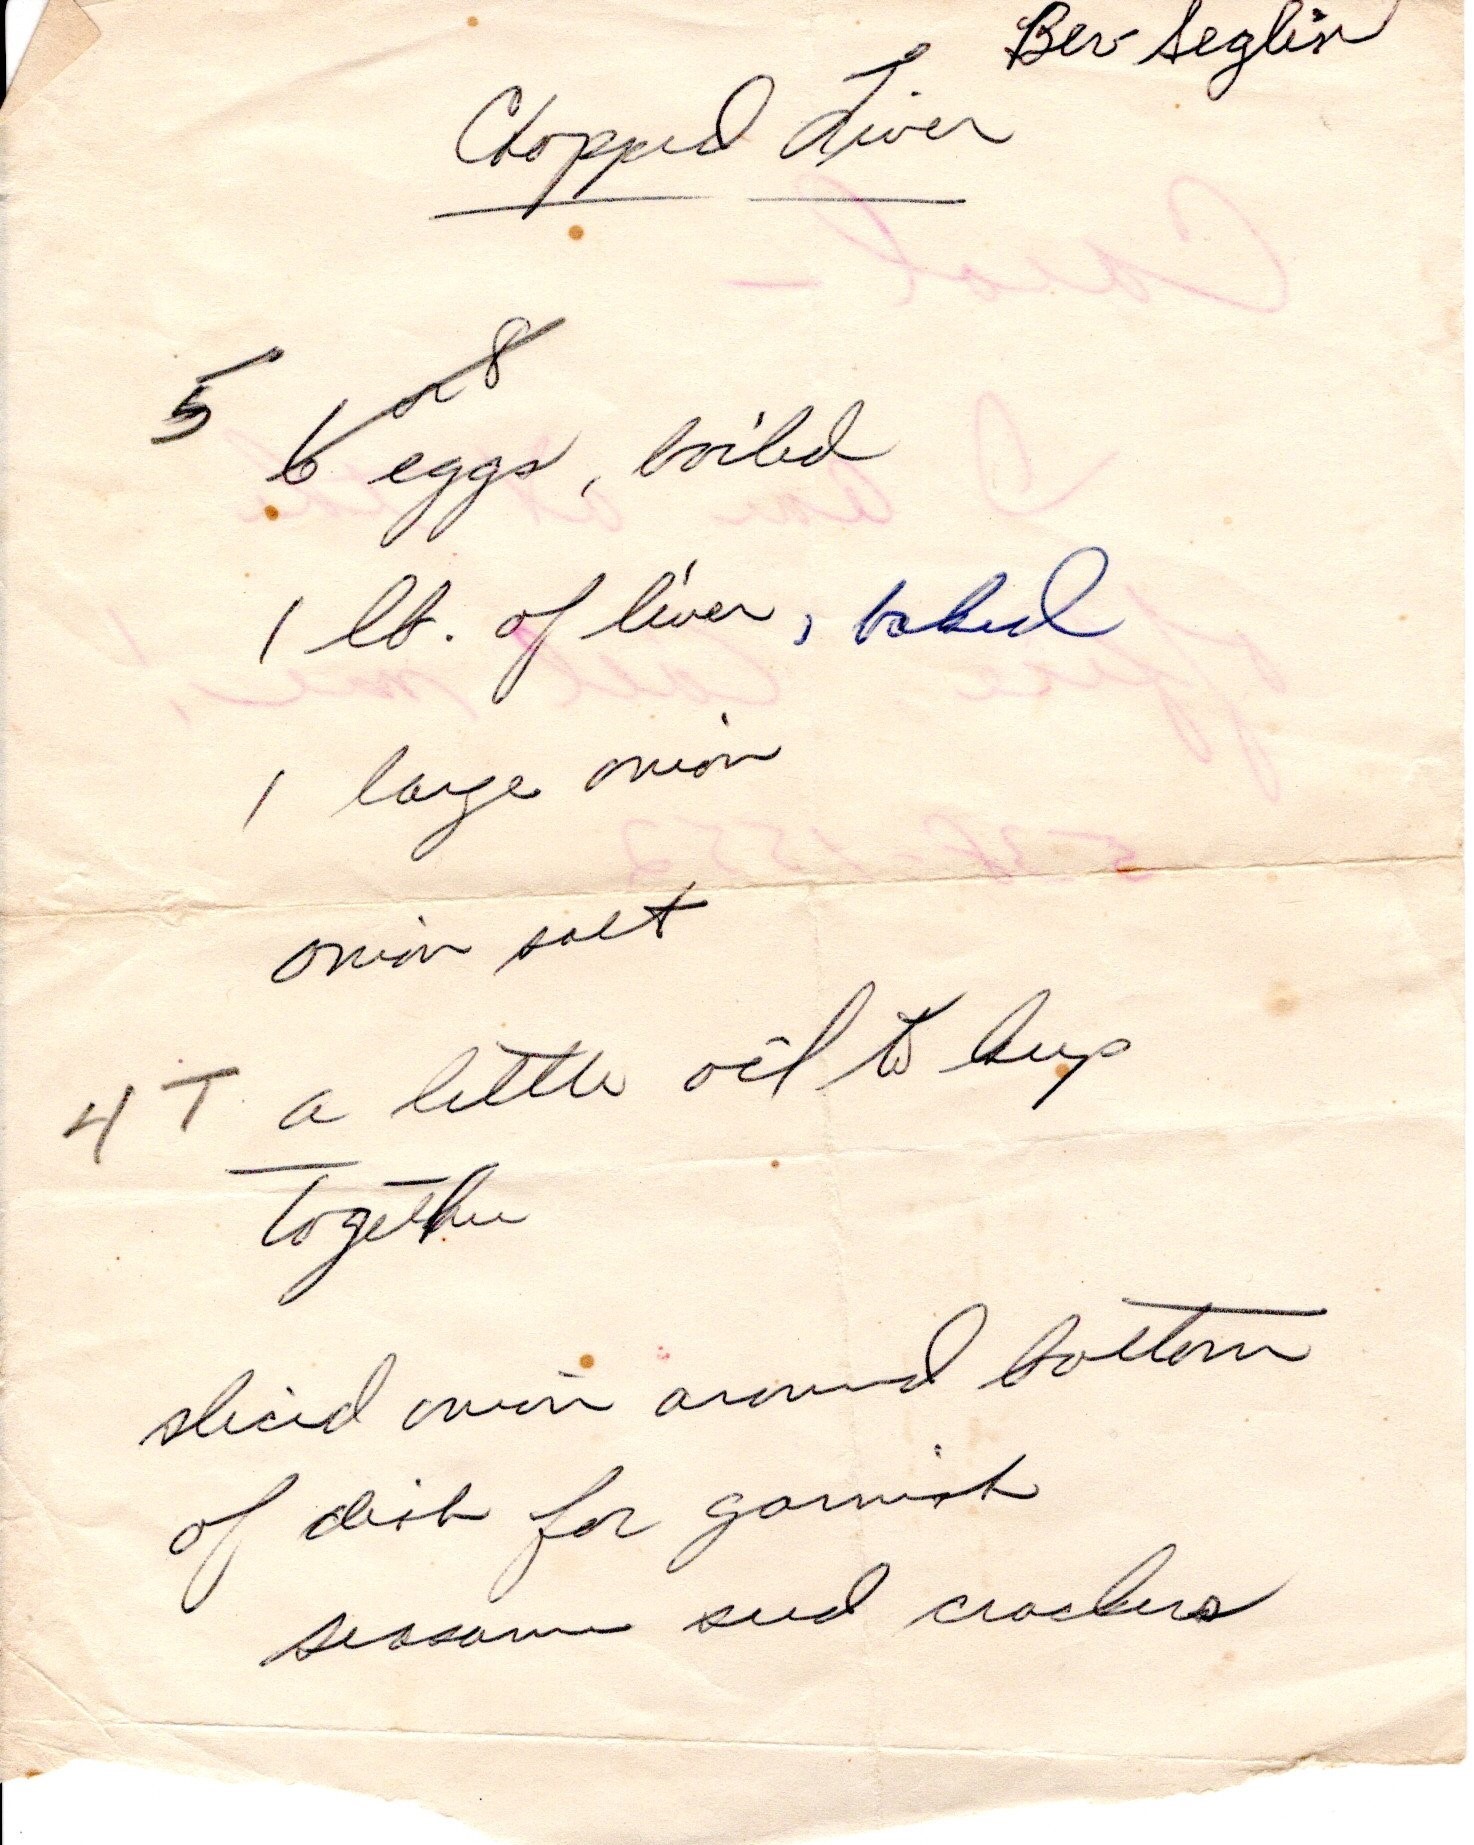 Bev Seglin
Chopped Liver
5 6 or 8 eggs, boiled
1 lb. of liver, baked
1 large onion
onion salt
4 T a little oil to keep
together
sliced onion around bottom
of dish for garnish
seasame seed crackers
Carol —
I am at the
office call me,
536-1552